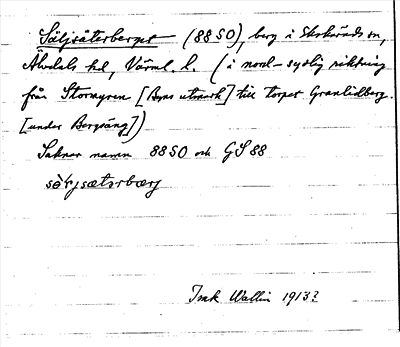 Säljsäterberget (88 SO), berg i Ekshärads sn,
Älvdals hd, Värml. l. (i nord-sydlig riktning
från Stormyren [Byns utmark] till torpet Granlidberg.
[under Bergsäng])
Saknar namn 88 SO och GS 88
Isak Wallin 1913?